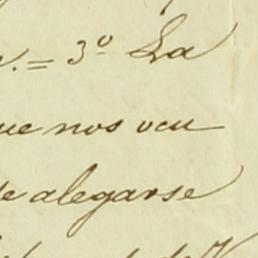 = 3º La
ue nos ocu
de alegarse